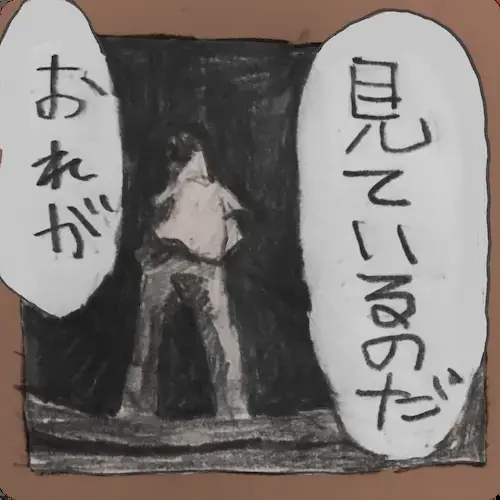 見ているのだ
おれが